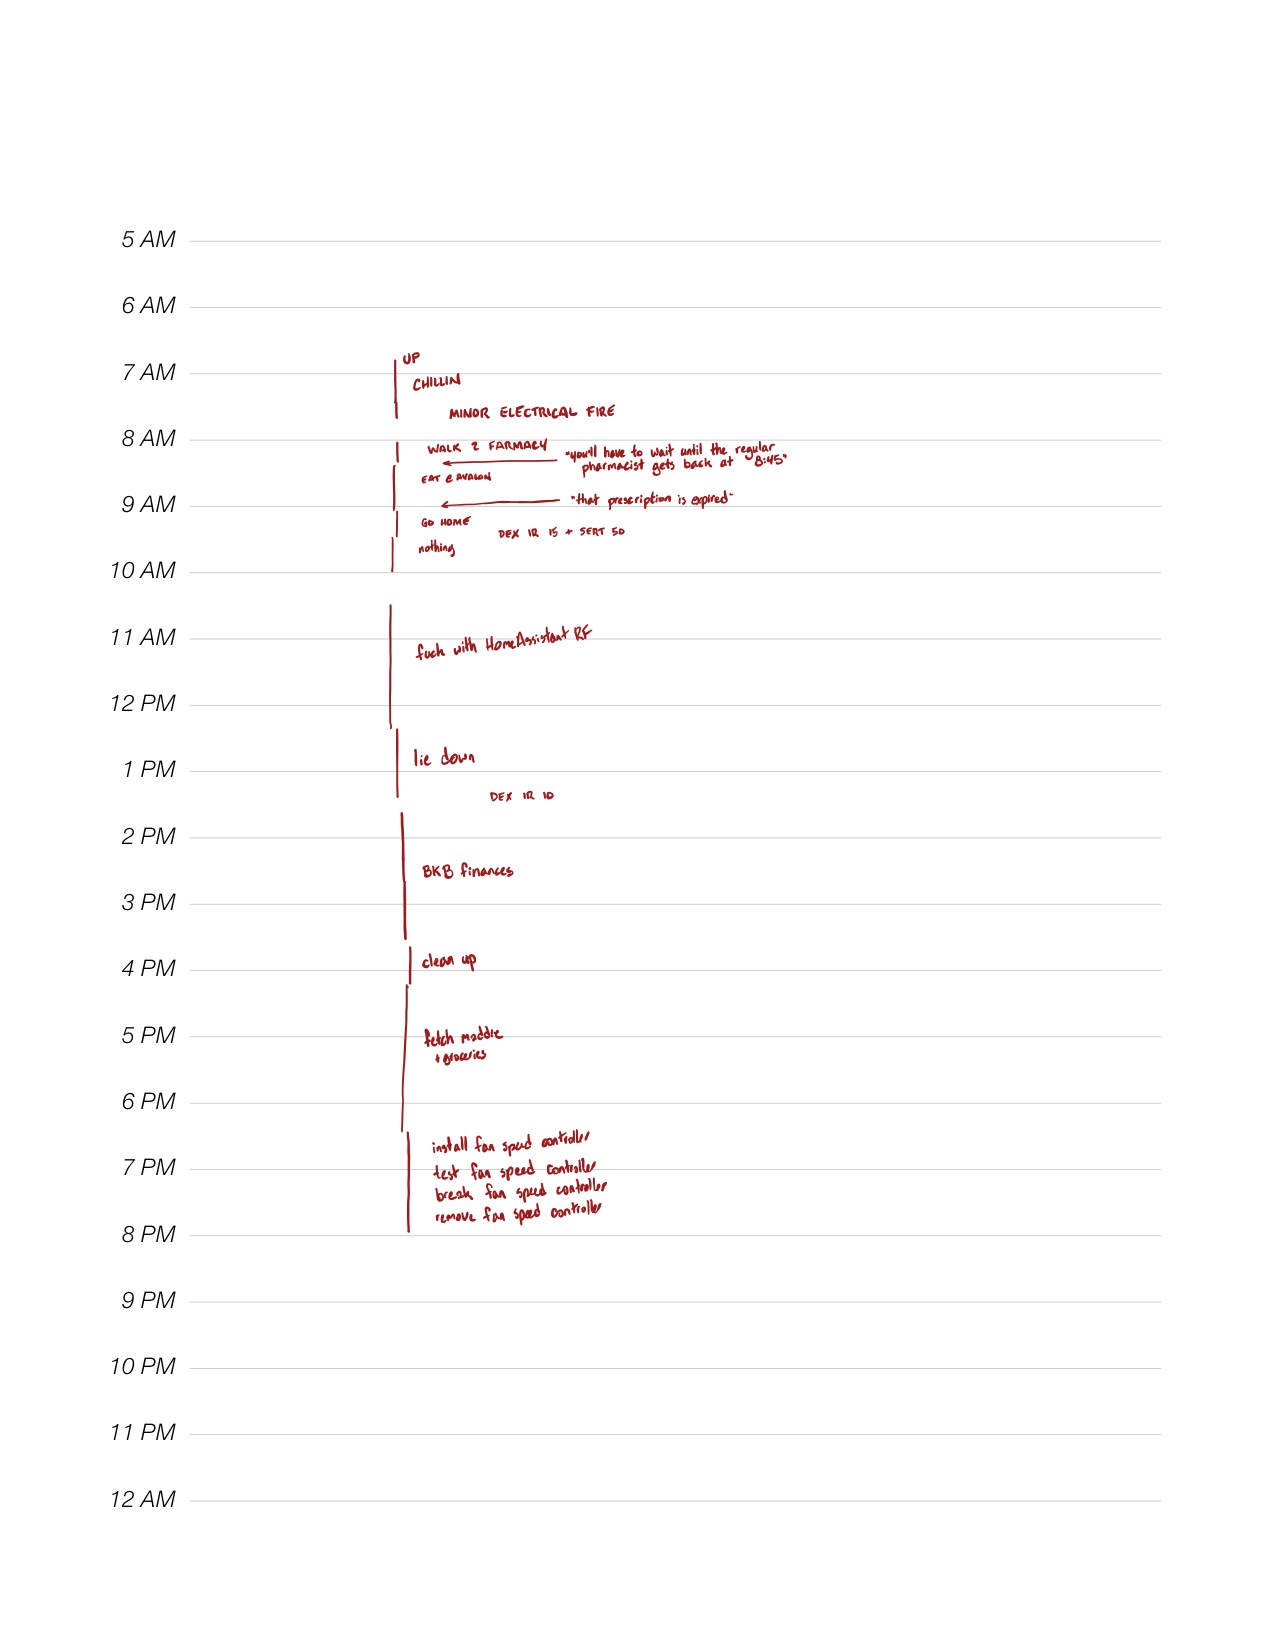 5 AM
6 AM
UP
7 AM
CHILLIN
MINOR ELECTRICAL FIRE
8 AM
WALK 2 FARMACY
"you'll have to wait until the regular
pharmacist gets back at "8:45"
EAT @ AVALON
"that prescription is expired"
9 AM
GO HOME
DEX IR 15 + SERT 50
nothing
10 AM
11 AM
fuck with HomeAssistant RF
12 PM
lie down
1 PM
DEX IR 10
2 PM
BKB finances
3 PM
clean up
4 PM
5 PM
fetch maddie
+ groceries
6 PM
install fan speed controller
7 PM
test fan speed controller
break fan speed controller
remove fan speed controller
8 PM
9 PM
10 PM
11 PM
12 AM